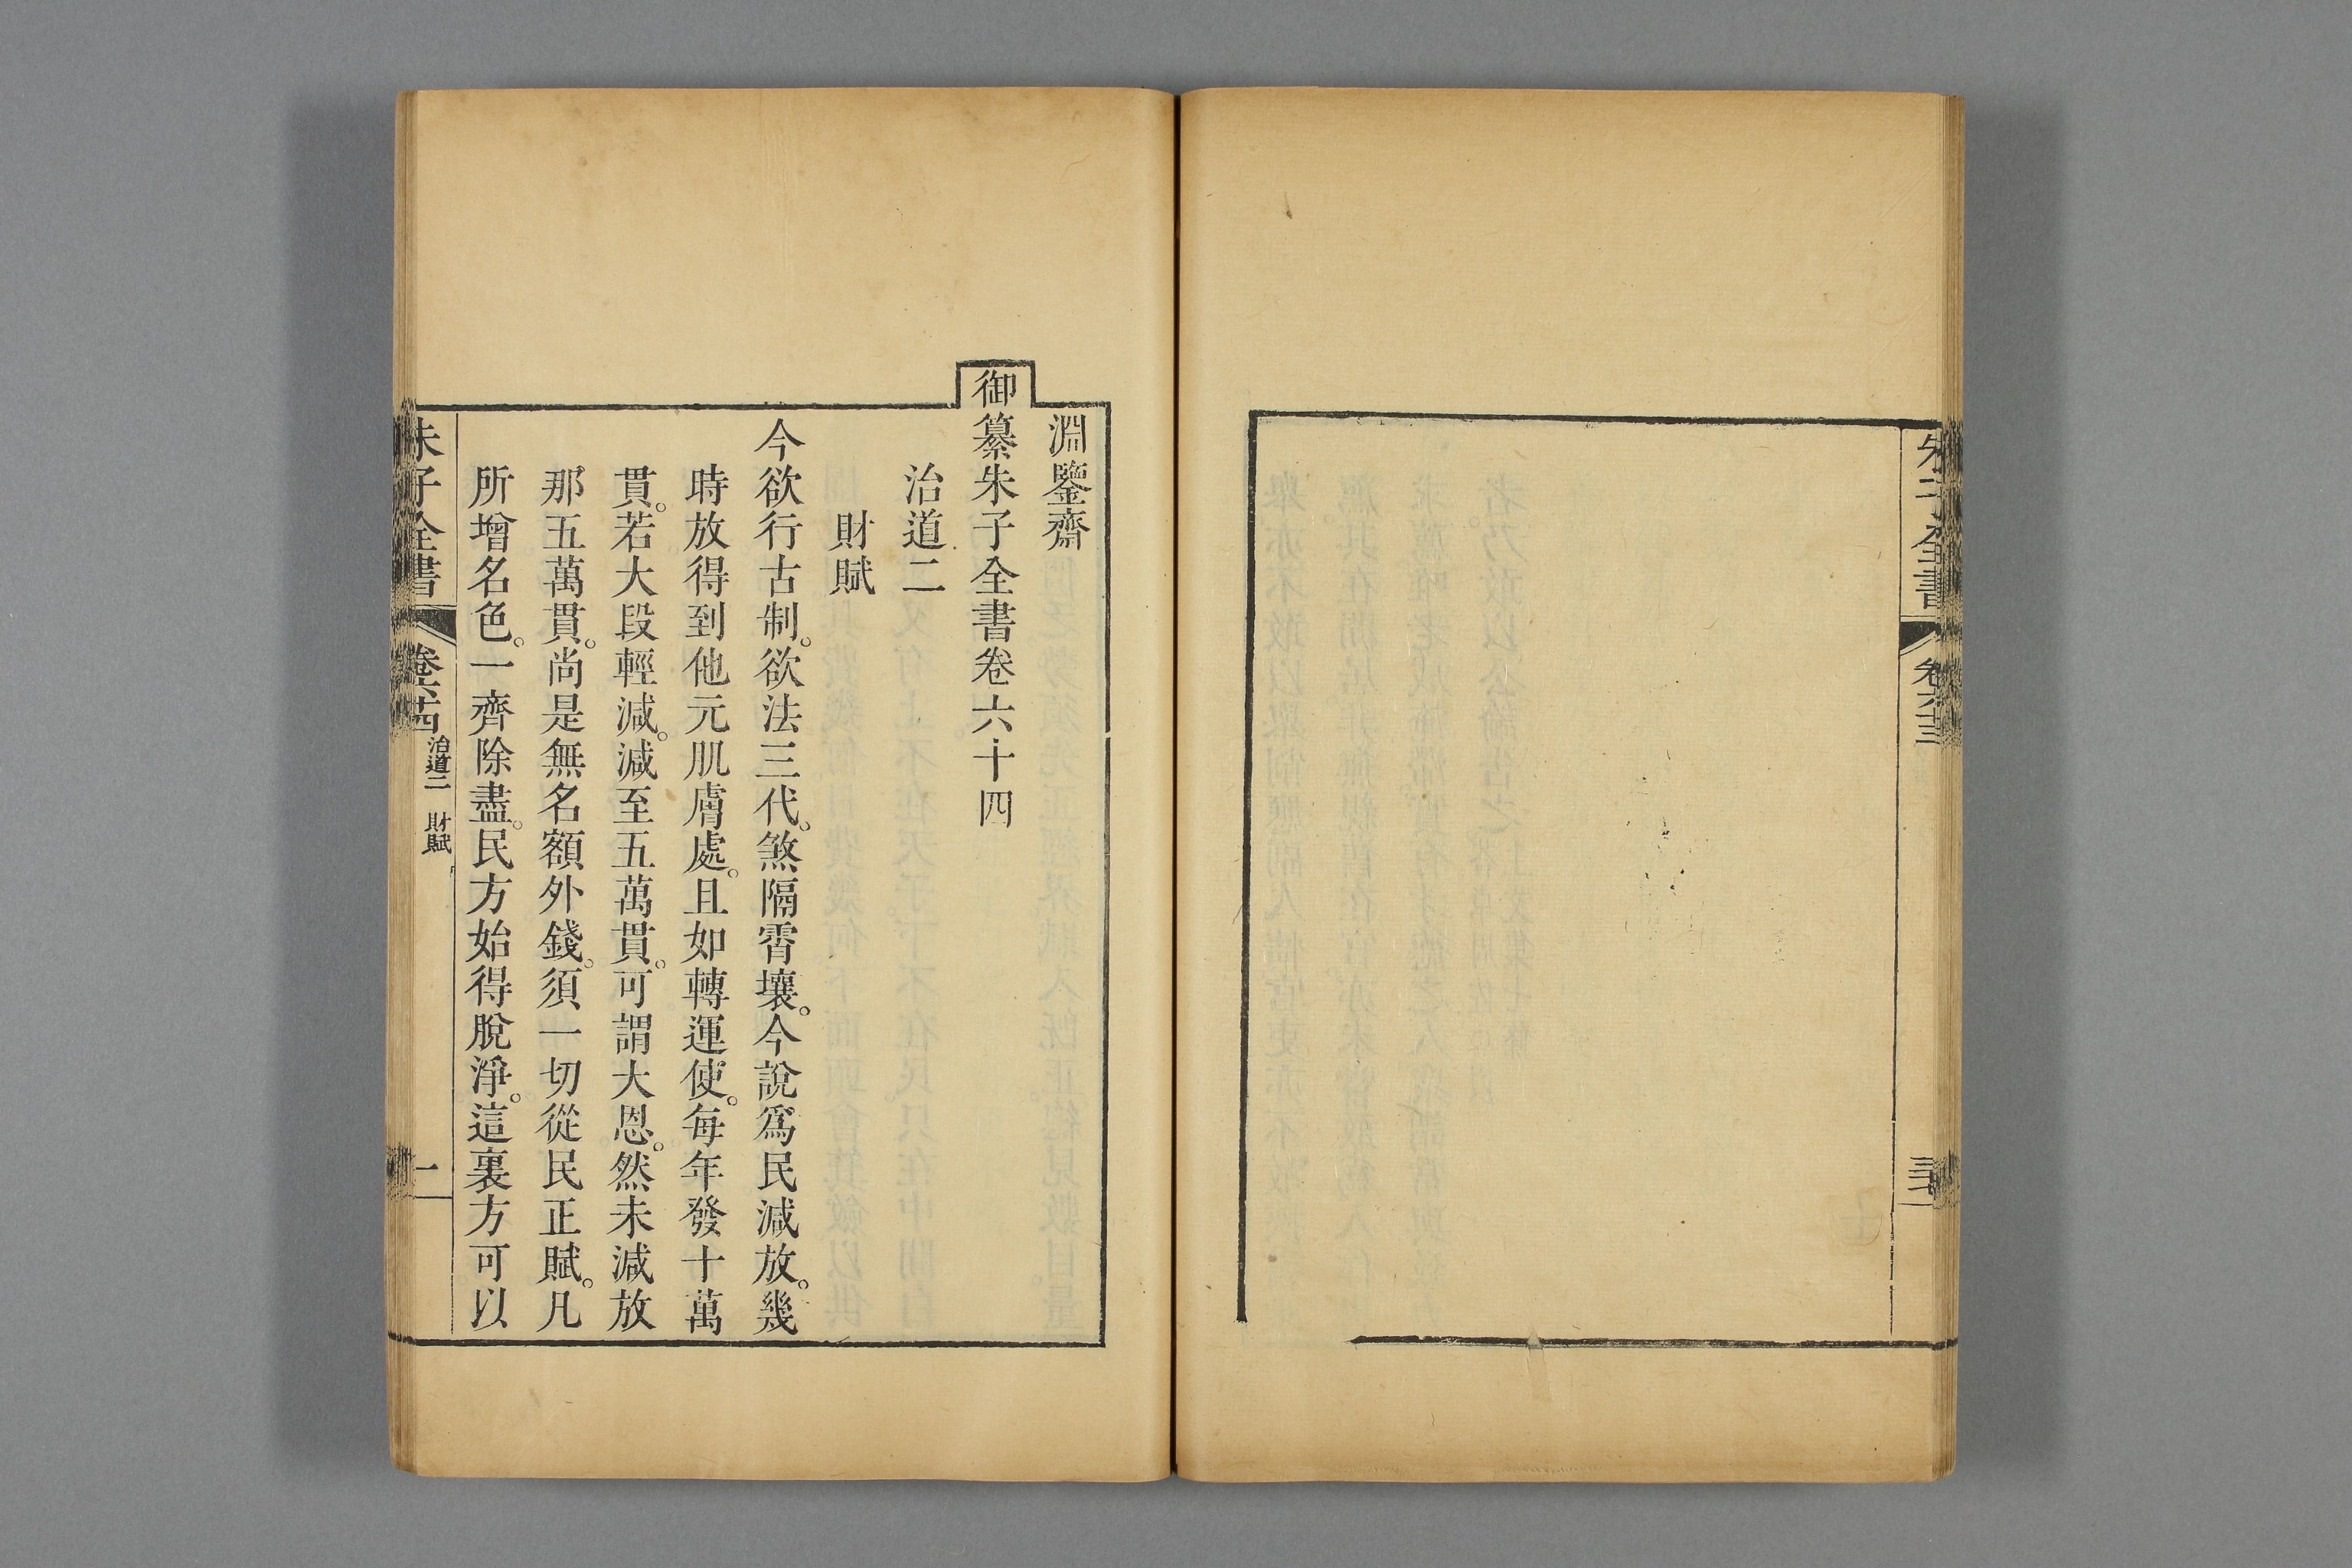 朱子全書 卷六十三
三十七
淵鑒齋
御纂朱子全書卷六十四
治道二
財賦
今欲行古制。欲法三代。煞隔霄壤。今說爲民減放。幾
時放得到他元肌膚處。且如轉運使。每年發十萬
貫。若大段輕減。減至五萬貫。可謂大恩。然未減放
那五萬貫。尚是無名額外錢。須一切從民正賦。凡
所增名色。一齊除盡。民方始得脫淨。這裏方可以
朱子全書 卷六十四 治道二 財賦 一